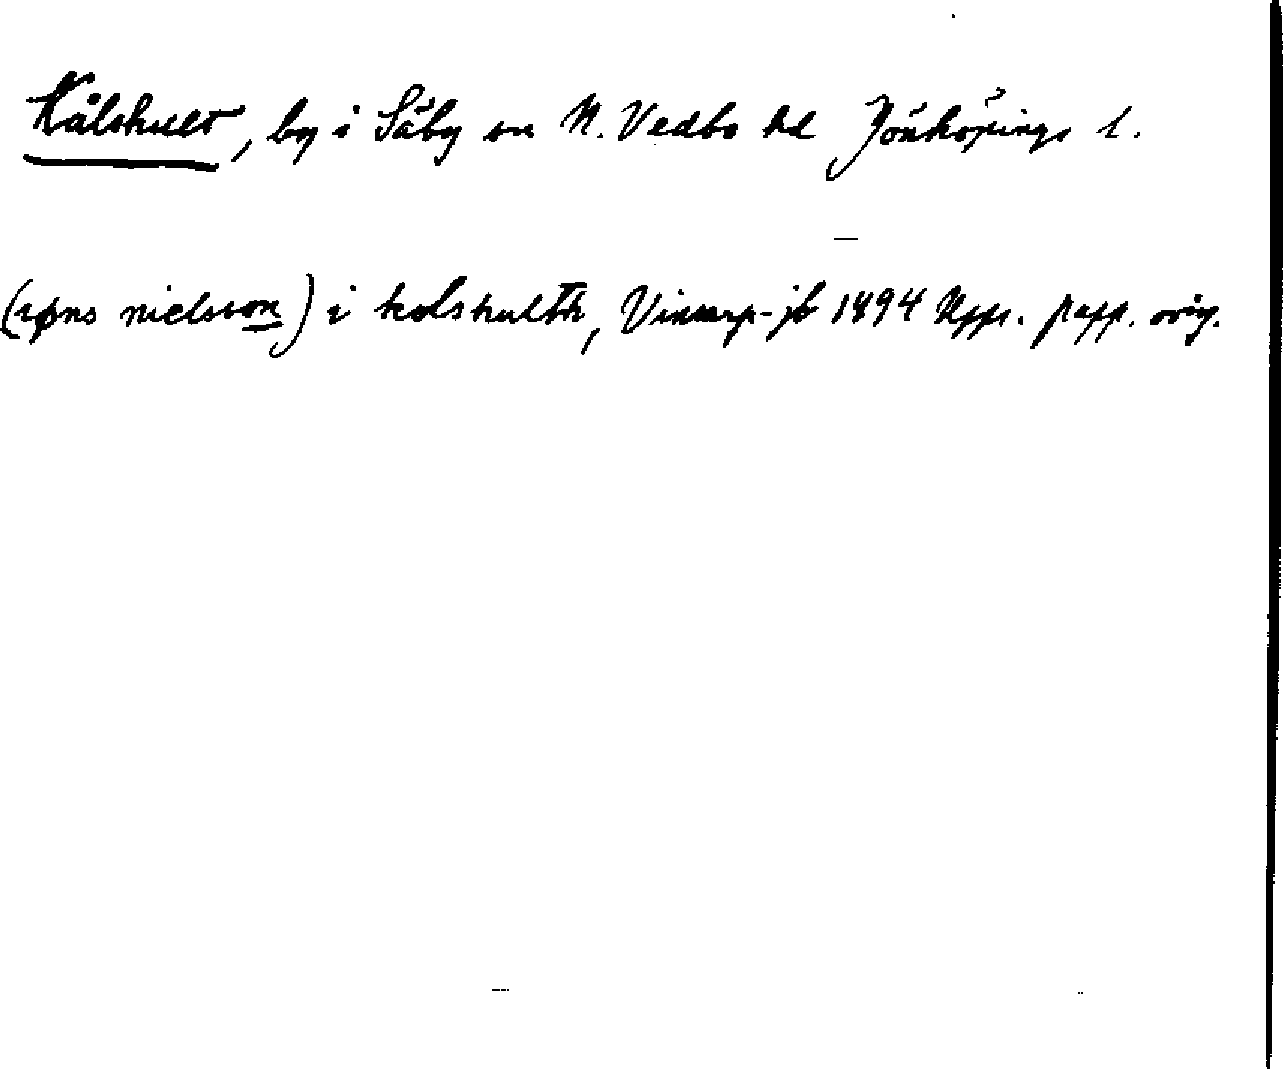 Kålshult, by i Säby sn N. Vedbo hd Jönköpings l.
(iøns nielsson) i kolshulth, Vinarp-jb 1494 Upps. papp. orig.